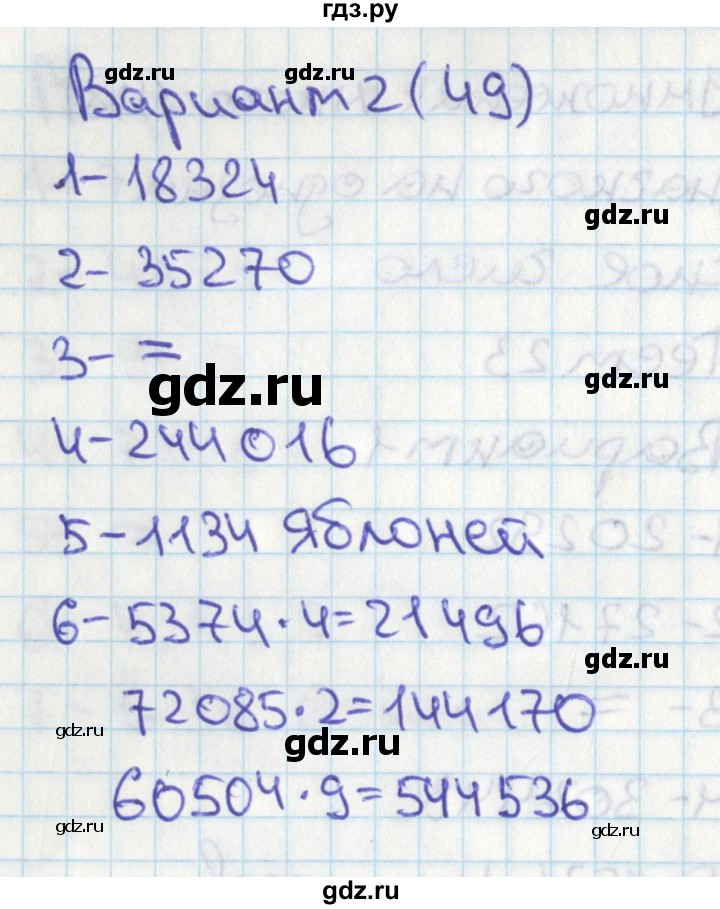 гдз.ру
gdz.ru gdz.ru
Вариант 2 (49)
1- 18324
gdz.ru
2- 35270
3- =
gdz.ru gdz.ru
4- 244016
5- 1134 яблоней
gdz.ru
6- 5374·4=21496
gdz.ru
72085·2=144170
gdz.ru gdz.ru
60504·9=544536
gdz.ru gdz.ru
gdz.ru